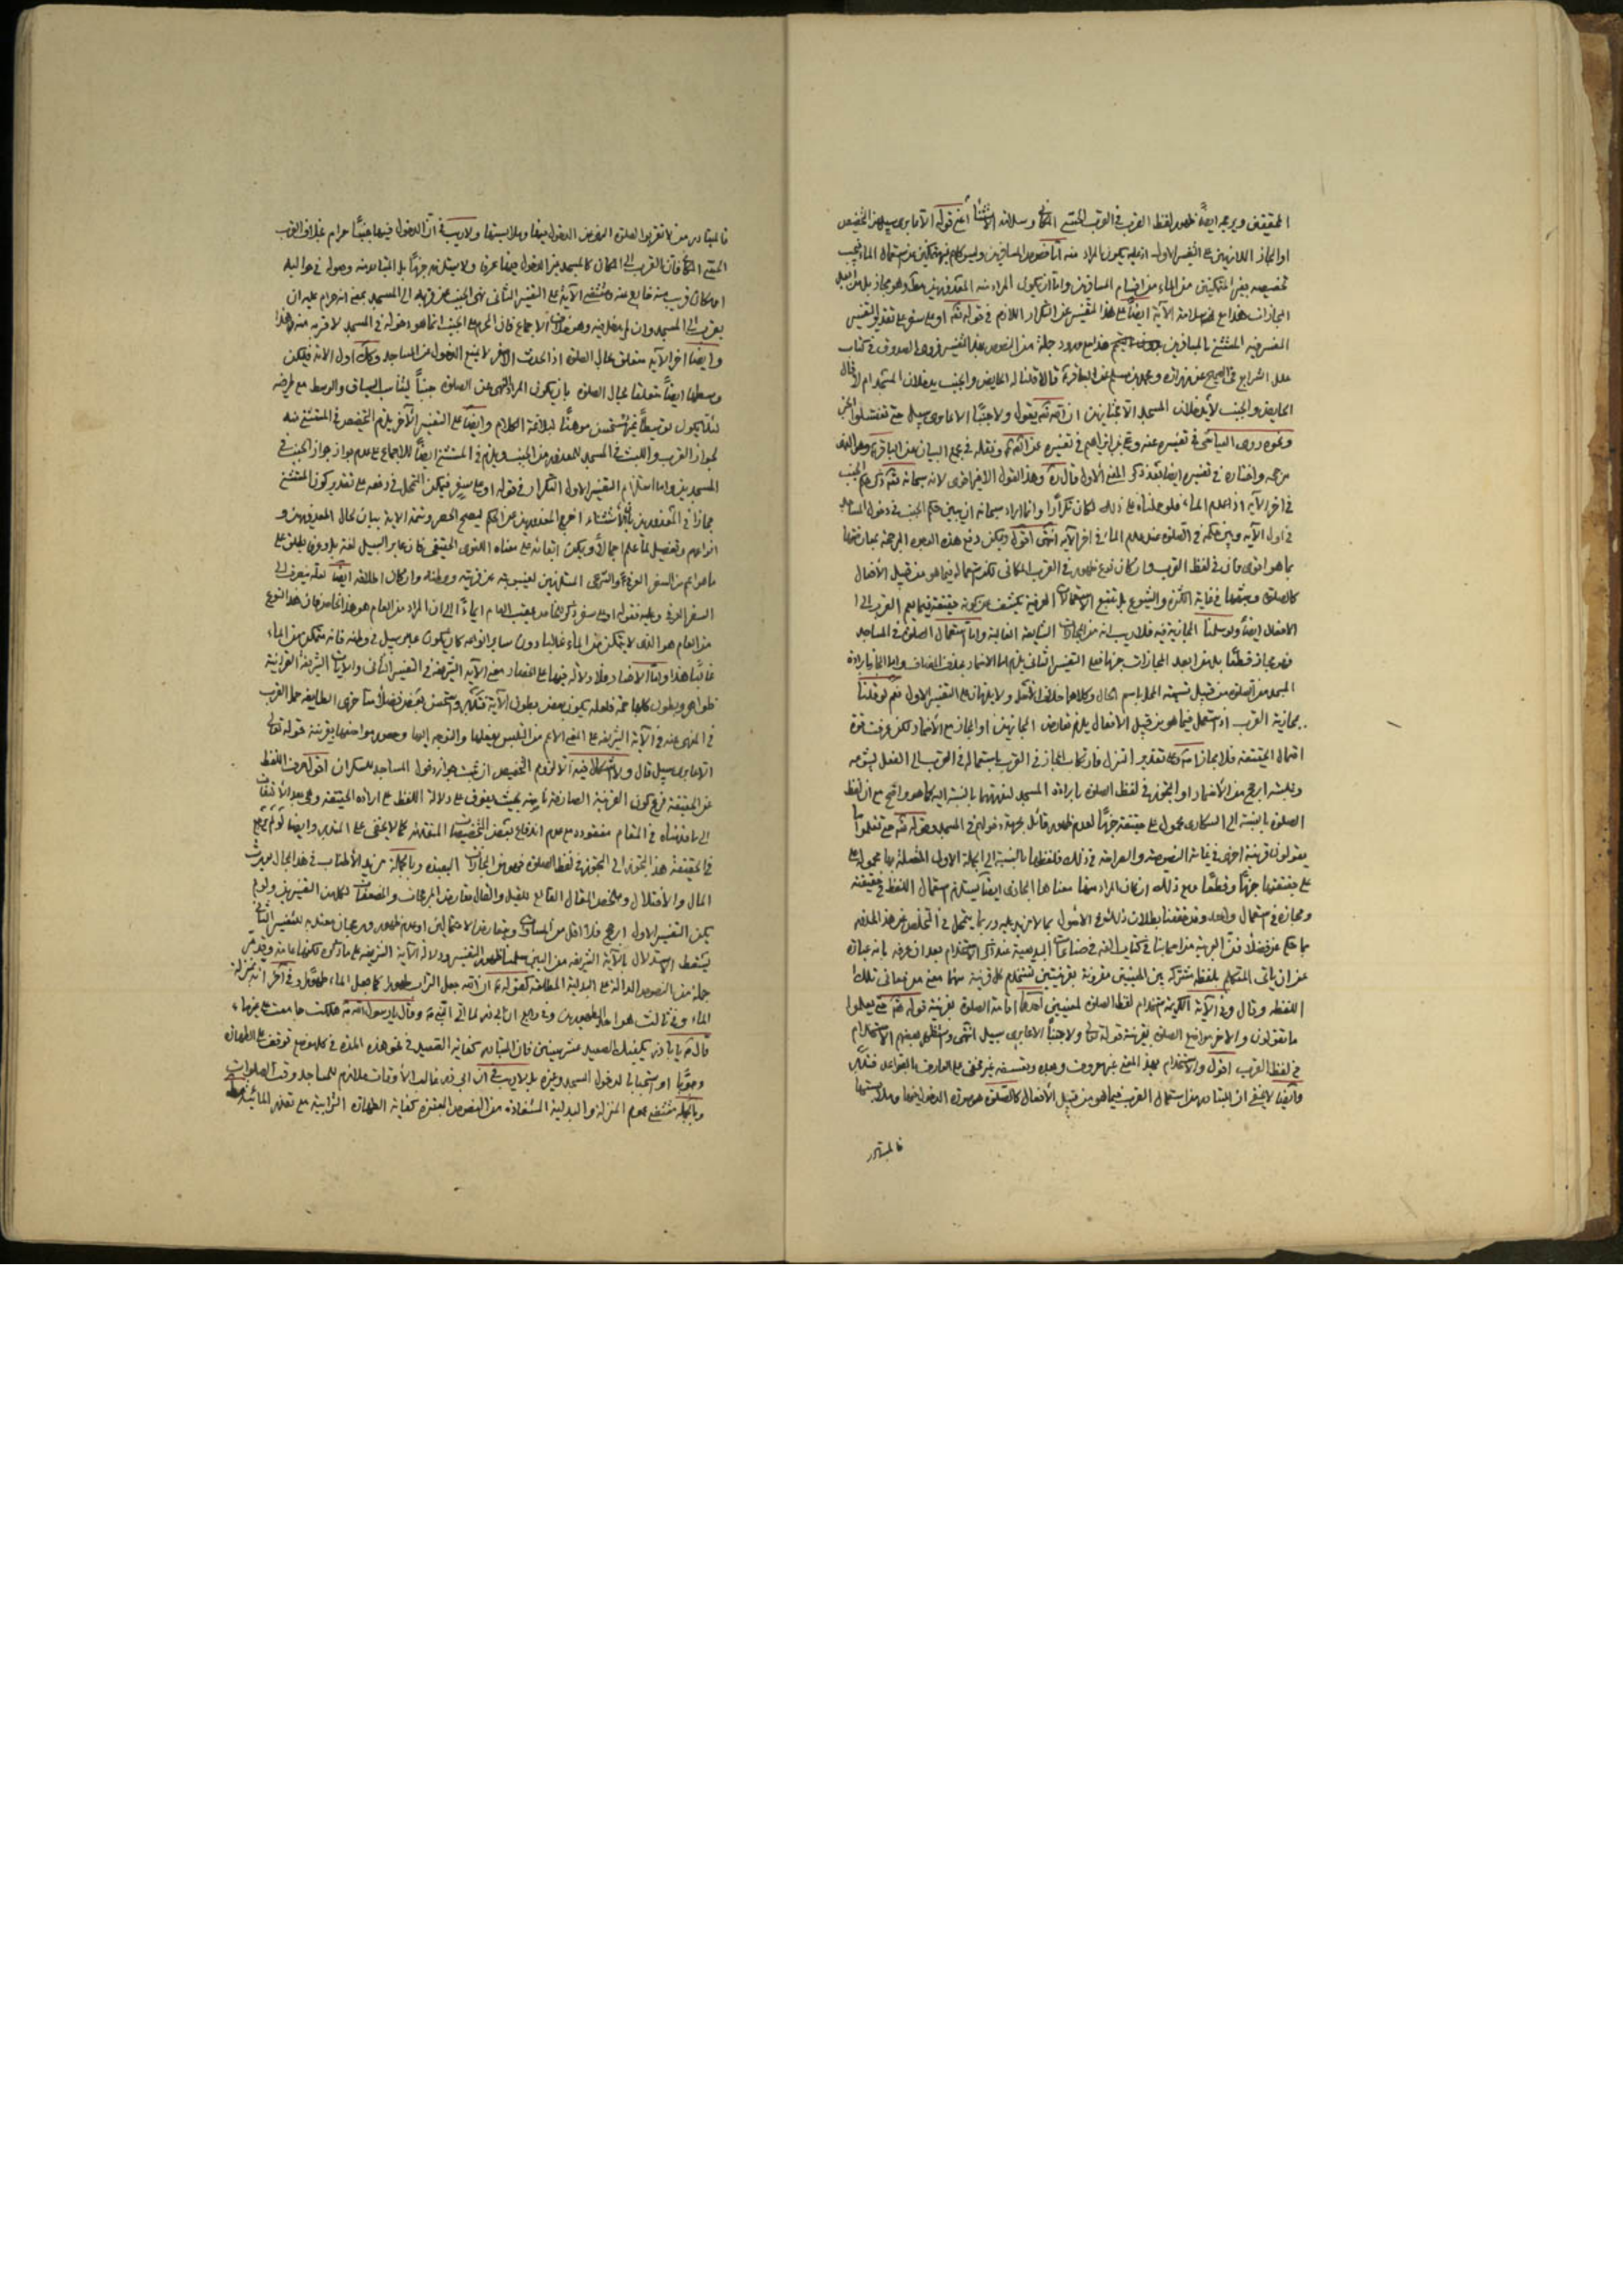 الحقيقتين ويرجحه ايضاً ظهور لفظ القرب في القرب الحسّي المكاني وسلامة الاستثناء اعني قوله الا عابري سبيل من التخصيص
او المجاز اللازمين على التفسير الاول اذ عليه يكون المراد منه اما خصوص المسافرين وليس كلهم غير متمكنين من استعمال الماء فيجب
تخصيصه بغير المتمكنين من الماء من اقسام المسافرين واما ان يكون المراد منه المعذورين مطلقا وهو مجاز بل من ابعد
المجازات هذا مع سلامة الآية ايضاً على هذا التفسير عن التكرار اللازم في قوله تعالى او على سفر على تقدير التفسير
المفسر فيه المستثنى بالمسافرين هذا مع ورود جملة من النصوص بهذا التفسير فروى الصدوق في كتاب
علل الشرايع في الصحيح عن زرارة ومحمد بن مسلم عن الباقر قالا قلنا له الحايض والجنب يدخلان المسجد ام لا قال
الحايض والجنب لا يدخلان المسجد الا مجتازين ان الله تعالى يقول ولا جنبا الا عابري سبيل حتى تغتسلوا الخبر
ونحوه روى العياشي في تفسيره عنه وعلي بن ابراهيم في تفسيره عن الصادق ونقله في مجمع البيان عن الباقر وهو الذي
رجحه واختاره في تفسيره ايضا بعد ذكر المعنى الاول قال وهذا القول الاخير اقوى لانه سبحانه بيّن حكم الجنب
في آخر الآية اذا عدم الماء فلو حملناه على ذلك لكان تكرارا وانما اراد سبحانه ان يبين حكم الجنب في دخول المساجد
في اول الآية ويبين حكمه في الصلوة عند عدم الماء في آخر الآية انتهى اقول ويمكن دفع هذه الوجوه المرجحة بمعارضتها
بما هو اقوى فان في لفظ القرب وان كان نوع ظهور في القرب المكاني لكن استعماله فيما هو من قبيل الافعال
كالصلوة وشبهها في غاية الكثرة والشيوع بل تتبع الاستعمالات العرفية يكشف عن كونه حقيقة فيما يعم القرب الى
الافعال ايضاً ولو سلمنا المجازية فيه فلا ريب انه من المجازات الشايعة الغالبة واما استعمال الصلوة في المساجد
فهو مجاز قطعاً بل من ابعد المجازات جزماً فعلى التفسير الثاني يلزم اما الاضمار بحذف المضاف واما المجاز بارادة
المسجد من الصلوة من قبيل تسمية المحل باسم الحال وكلاهما خلاف الاصل ولا يلزمان على التفسير الاول نعم لو قلنا
بمجازية القرب اذا استعمل فيما هو من قبيل الافعال يلزم تعارض المجازين او المجاز مع الاضمار لكن عرفت قوة
احتمال الحقيقة فلا مجاز اصلا وعلى تقدير التنزل فارتكاب المجاز في القرب باستعماله في القرب الى الفعل
ارجح من الاضمار او التجوز في لفظ الصلوة بارادة المسجد منها بالنسبة اليه كما هو واضح مع ان لفظ
الصلوة بالنسبة الى السكارى محمول على حقيقته جزماً لعدم ظهور قائل بحرمة دخولهم في المسجد وقوله تعالى حتى تعلموا ما
تقولون قرينة اخرى في غاية النصوصية والصراحة في ذلك فلفظها بالنسبة الى الجملة الاولى المتصلة بها محمولة على
حقيقتها جزماً وقطعاً ومع ذلك ان كان المراد منها معناها المجازي ايضاً يستلزم استعمال اللفظ في حقيقته
ومجازه في استعمال واحد وقد حققنا بطلان ذلك في الاصول بما لا مزيد عليه وربما يتمحل في التخلص عن هذا المحذور
بما حكي عن بعض فضلاء فن العربية من اصحابنا في كتاب الفه في صناعات البديعية عند ذكر الاستخدام بعد ان عرفه بانه عبارة
عن ان يأتي المتكلم بلفظة مشتركة بين المعنيين مقرونة بقرينتين تستخدم كل قرينة منهما معنى من معاني تلك
اللفظة وقال وفي الآية الكريمة استخدام لفظ الصلوة لمعنيين احدهما اقامة الصلوة بقرينة قوله تعالى حتى تعلموا
ما تقولون والآخر مواضع الصلوة بقرينة قوله تعالى ولا جنباً الا عابري سبيل انتهى واستظهر بعضهم الاستخدام
في لفظ القرب اقول والاستخدام بهذا المعنى غير معروف وبعده وتعسفه غير مخفي على العارف بالقواعد فتدبر
وايضاً لا يخفى ان المتبادر من استعمال القرب فيما هو من قبيل الافعال كالصلوة هو صورة الدخول فيها وملابستها
فالمتبادر
فالمتبادر من لا تقربوا الصلوة النهي عن الدخول فيها وملابستها ولا ريب في ان الدخول فيها جنباً حرام بخلاف القرب
الحسي المكاني فان القرب الى المكان كالمسجد غير الدخول فيها عرفا ولا يستلزمه جزماً بل المتبادر منه وصوله في حواليه
او مكان قريب منه خارج عنه ومقتضى الآية على التفسير الثاني نهي الجنب عن قربه الى المسجد بمعنى انه حرام عليه ان
يقرب الى المسجد وان لم يدخل فيه وهو خلاف الاجماع فان المحرم على الجنب انما هو دخوله في المسجد لا قربه منه هذا
وايضاً آخر الآية متعلق بحال الصلوة اذ الحدث الاصغر لا يمنع الدخول في المساجد وكذلك اول الآية فليكن
وسطها ايضاً متعلقا بحال الصلوة بان يكون المراد النهي عن الصلوة جنباً ليناسب السياق والوسط مع طرفيه
لئلا يكون توسيطاً غير مستحسن موهناً لبلاغة الكلام وايضاً على التفسير الآخر يلزم التخصيص في المستثنى منه
لجواز القرب واللبث في المسجد للمعذور من الجنب ويلزم في المستثنى ايضاً للاجماع على عدم جواز جواز الجنب في
المسجدين واما استلزام التفسير الاول التكرار في قوله او على سفر فيمكن التمحل في دفعه على تقدير كون المستثنى
مجازا في المعذورين بان الاستثناء اخرج المعذورين عن الحكم ليصح الحصر وتتمة الآية بيان لحال المعذورين و
انواعهم وتفصيل لما علم اجمالا ويمكن ابقائه على معناه اللغوي الحقيقي فان عابر السبيل لغة بل وعرفا يطلق على
ما هو اعم من السفر العرفي والشرعي المستلزمين لغيبوبته عن قريته ووطنه وان كان اطلاقه ايضا لعله ينصرف الى
السفر العرفي وعليه فقوله او على سفر ذكر للخاص بعقيب العام ايماء الى ان المراد من العام هو هذا الخاص فان هذا النوع
من العام هو الذي لا يتمكن من الماء غالبا دون ساير انواعه كان يكون عابر سبيل في وطنه فانه متمكن من الماء
غالبا هذا واما الاخبار فلا دلالة فيها على انحصار معنى الآية الشريفة في التفسير الثاني والآيات الشريفة القرآنية
ظواهر وبطون كلها حجة فلعله يكون بعض بطون الآية فتدبر واستحسن بعض فضلاء متأخري الطايفة حمل القرب
في المنهي عنه في الآية الشريفة على المعنى الاعم من التلبس بفعلها والتوجه اليها وحضور مواضعها بقرينة قوله تعالى
الا عابري سبيل قال ولا اشكال فيه الا لزوم التخصيص ان ثبت جواز دخول المساجد للسكران اقول صرف اللفظ
عن الحقيقة فرع كون القرينة الصارفة تامة بحيث يفوق على دلالة اللفظ على ارادة الحقيقة وهي بعد الالتفات
الى ما قدمناه في المقام مفقودة مع عدم اندفاع بعض التخصيصات المتقدمة كما لا يخفى على المتدبر وايضا لو لم يرجع
في الحقيقة هذا التجوز الى التجوز في لفظ الصلوة فهو من المجازات البعيدة وبالجملة مزيد الاطناب في هذا المجال يورث
الملال والاختلال وملخص المقال القاطع للقيل والقال تعارض المرجحات والمضعفات لكل من التفسيرين ولو لم
يكن التفسير الاول ارجح فلا اقل من المساواة وتعارض الاحتمالين او عدم ظهور ورجحان معتد به للتفسير الثاني
يسقط الاستدلال بالآية الشريفة من البين سلمنا ظهور التفسير ودلالة الآية الشريفة على ما ذكروه لكنها عامة وقد مر
جملة من النصوص الدالة على البدلية المطلقة كقوله ان الله جعل التراب طهورا كما جعل الماء طهورا وفي آخر انه بمنزلة
الماء وفي ثالث هو احد الطهورين وفي رابع ان ابي ذر لما اتى النبي وقال يا رسول الله هلكت جامعت على غير ماء
قال يا باذر يكفيك الصعيد عشر سنين فان المتبادر كفاية الصعيد في نحو هذه المدة في كل موضع توقف على الطهارة
وجوبا او استحبابا لدخول المسجد وغيره بل لا ريب في ان ابي ذر غالب الاوقات ملازم للمساجد وقت الصلوات
وبالجملة مقتضى عموم المنزلة والبدلية المستفادة من النصوص المعتبرة كفاية الطهارة الترابية مع تعذر المائية